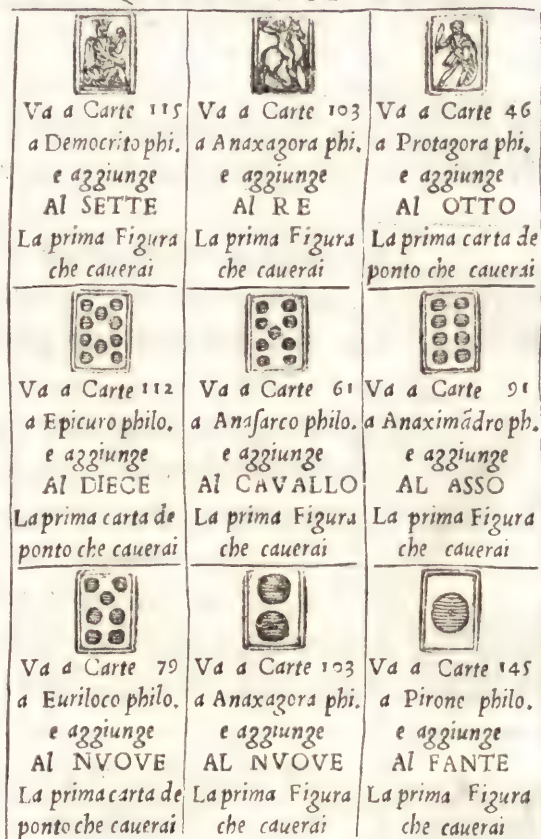 Va a Carte 115
a Democrito phi.
e aggiunge
Al SETTE
La prima Figura
che cauerai
Va a Carte 103
a Anaxagora phi.
e aggiunge
Al RE
La prima Figura
che cauerai
Va a Carte 46
a Protagora phi.
e aggiunge
Al OTTO
La prima carta de
ponto che cauerai
Va a Carte 112
a Epicuro philo.
e aggiunge
Al DIECE
La prima carta de
ponto che cauerai
Va a Carte 61
a Anasarco philo.
e aggiunge
Al CAVALLO
La prima Figura
che cauerai
Va a Carte 91
a Anaximãdro ph.
e aggiunge
AL ASSO
La prima Figura
che cauerai
Va a Carte 79
a Euriloco philo.
e aggiunge
Al NVOVE
La prima carta de
ponto che cauerai
Va a Carte 103
a Anaxagora phi.
e aggiunge
AL NVOVE
La prima Figura
che cauerai
Va a Carte 145
a Pirone philo.
e aggiunge
Al FANTE
La prima Figura
che cauerai